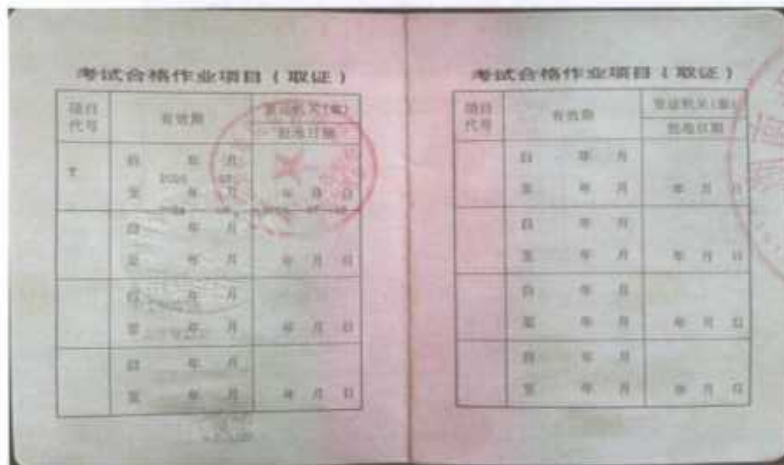 考试合格作业项目（取证）
项目代号 有效期 发证机关（章）
批准日期
T 自 年 月
至 年 月 年 月 日
自 年 月
至 年 月 年 月 日
自 年 月
至 年 月 年 月 日
自 年 月
至 年 月 年 月 日
考试合格作业项目（取证）
项目代号 有效期 发证机关（章）
批准日期
自 年 月
至 年 月 年 月 日
自 年 月
至 年 月 年 月 日
自 年 月
至 年 月 年 月 日
自 年 月
至 年 月 年 月 日